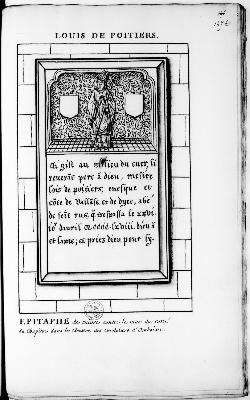 LOUIS DE POITIERS.
Cy gist au milieu du cuer, si
reverās pere ā dieu, messire
Lois de poitiers, evesque et
côte de Vallâce, et de dyee, abé
de seīt rus, q̄ trespassa le xxvij
jo᷑ davril m cccc lxviii. dieu ā
et lame, et priez dieu pour ly.
EPITAPHE de cuivre contre le mur du costé
du Chapitre dans le Choeur des Cordeliers d'Ambulan.